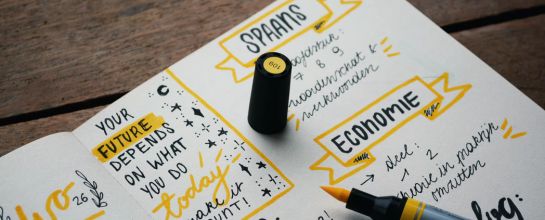 SPAANS
hoofdstuk:
7 8 9
woordenschat &
werkwoorden
109
ECONOMIE
→ deel:
→ 1 2
theorie in praktijk
omzetten
YOUR
FUTURE
DEPENDS
ON WHAT
YOU DO
today
make it
COUNT!
26